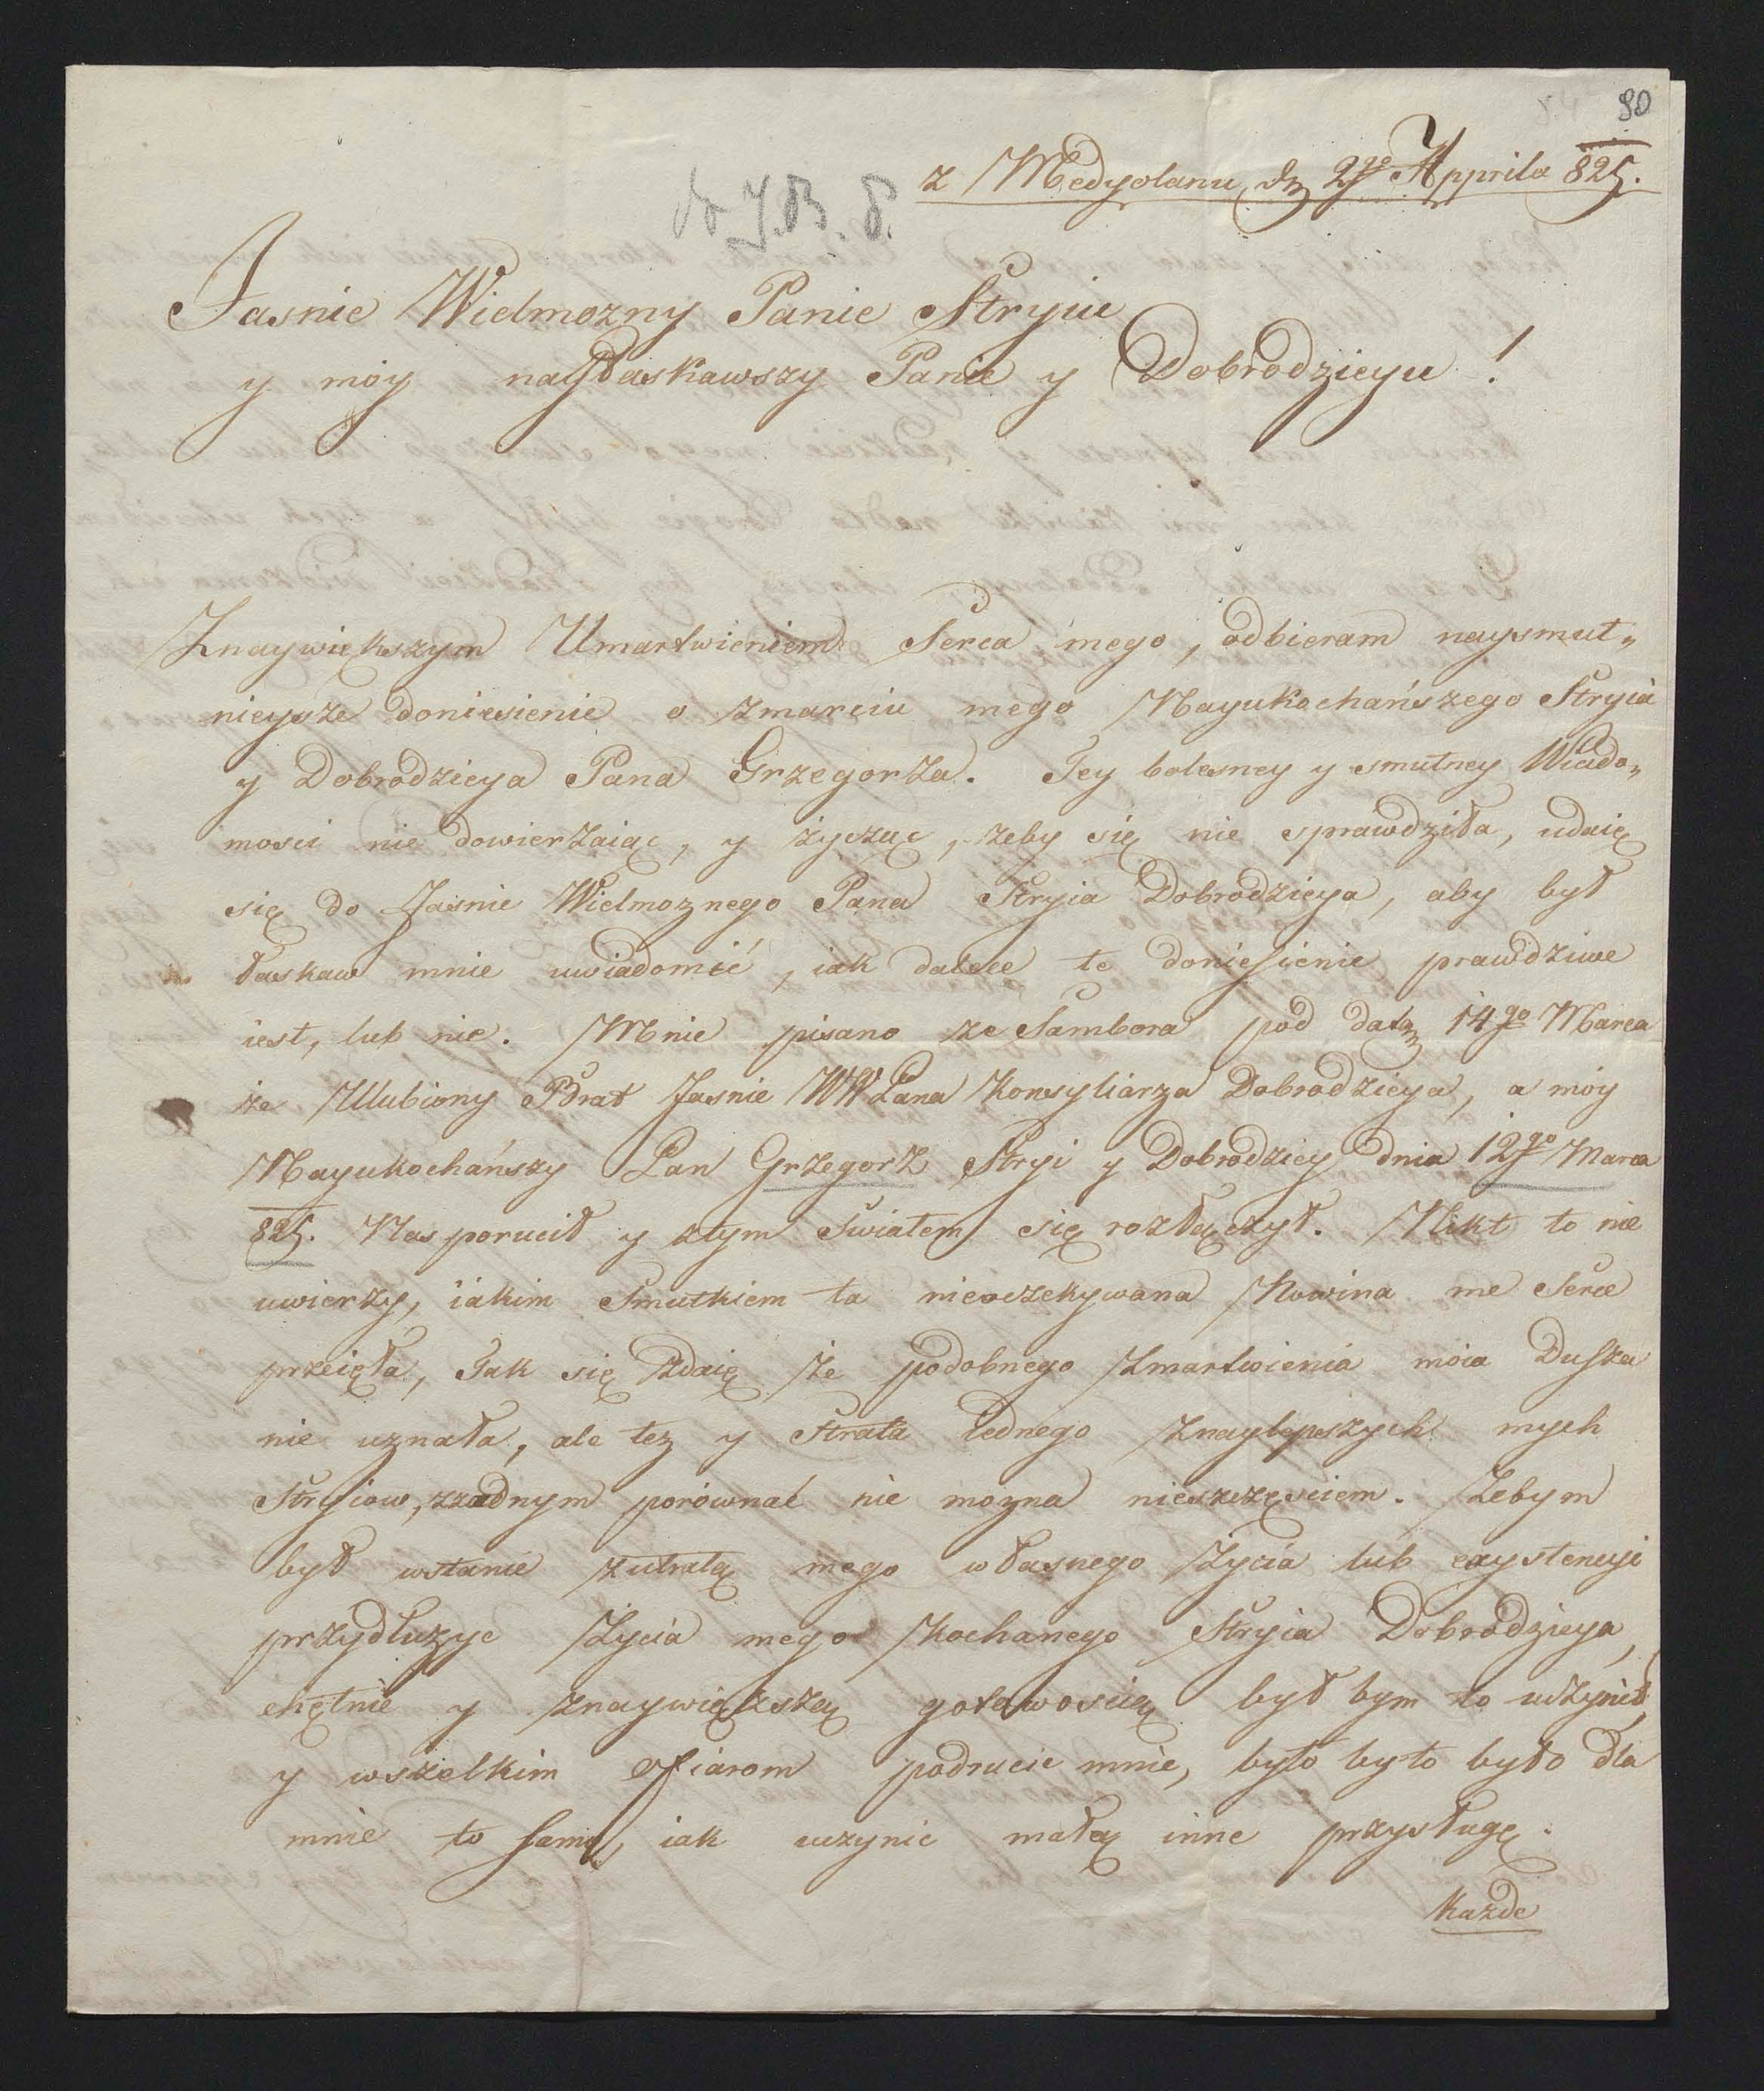 80
z Medyolanu, dn 2go Apprila 825.
do J. B. P.
Jasnie Wielmozny Panie Stryiu
y moy nayłaskawszy Panie y Dobrodzieyu !
Znaywiększym Umartwieniem Serca mego, odbieram naysmut„
nieysze doniesienie o zmarciu mego Nayukochańszego Stryia
y Dobrodzieya Pana Grzegorza. Tey bolesney y smutney Wiado„
mosci nie dowierzaiąc, y życząc, zeby się nie sprawdziła, udaię
się do Jasnie Wielmoznego Pana Stryia Dobrodzieya, aby był
łaskaw mnie uwiadomić, iak dalece te doniesienie prawdziwe
iest, lub nie. Mnie pisano ze Sambora pod datą 14go Marca
ze Ulubiony Brat Jasnie WW Pana Konsyliarza Dobrodzieya, a móy
Nayukochańszy Pan Grzegorz Stryi y Dobrodziey dnia 12go Marca
825. Nas porucił y ztym Swiatem się rozłączył. Nikt to nie
uwierzy, iakim Smutkiem ta nieoczekywana Nowina me Serce
przeięła, Tak się zdaię że podobnego zmartwienia moia Dusza
nie uznała, ale tez y Strata Iednego znaylepszych mych
Stryiow, zzadnym porównać nie mozna nieszczęsciem. Żebym
był wstanie zutratą mego własnego Życia lub exystencyi
przydłuzyc Życia mego Kochanego Stryia Dobrodzieya,
chętnie y znaywiększą gotowoscią był bym to uczynił,
y wszelkim ofiarom podrucic mnie, było by to było dla
mnie to samo, iak uczynic małą inne przysługę.
Kazde